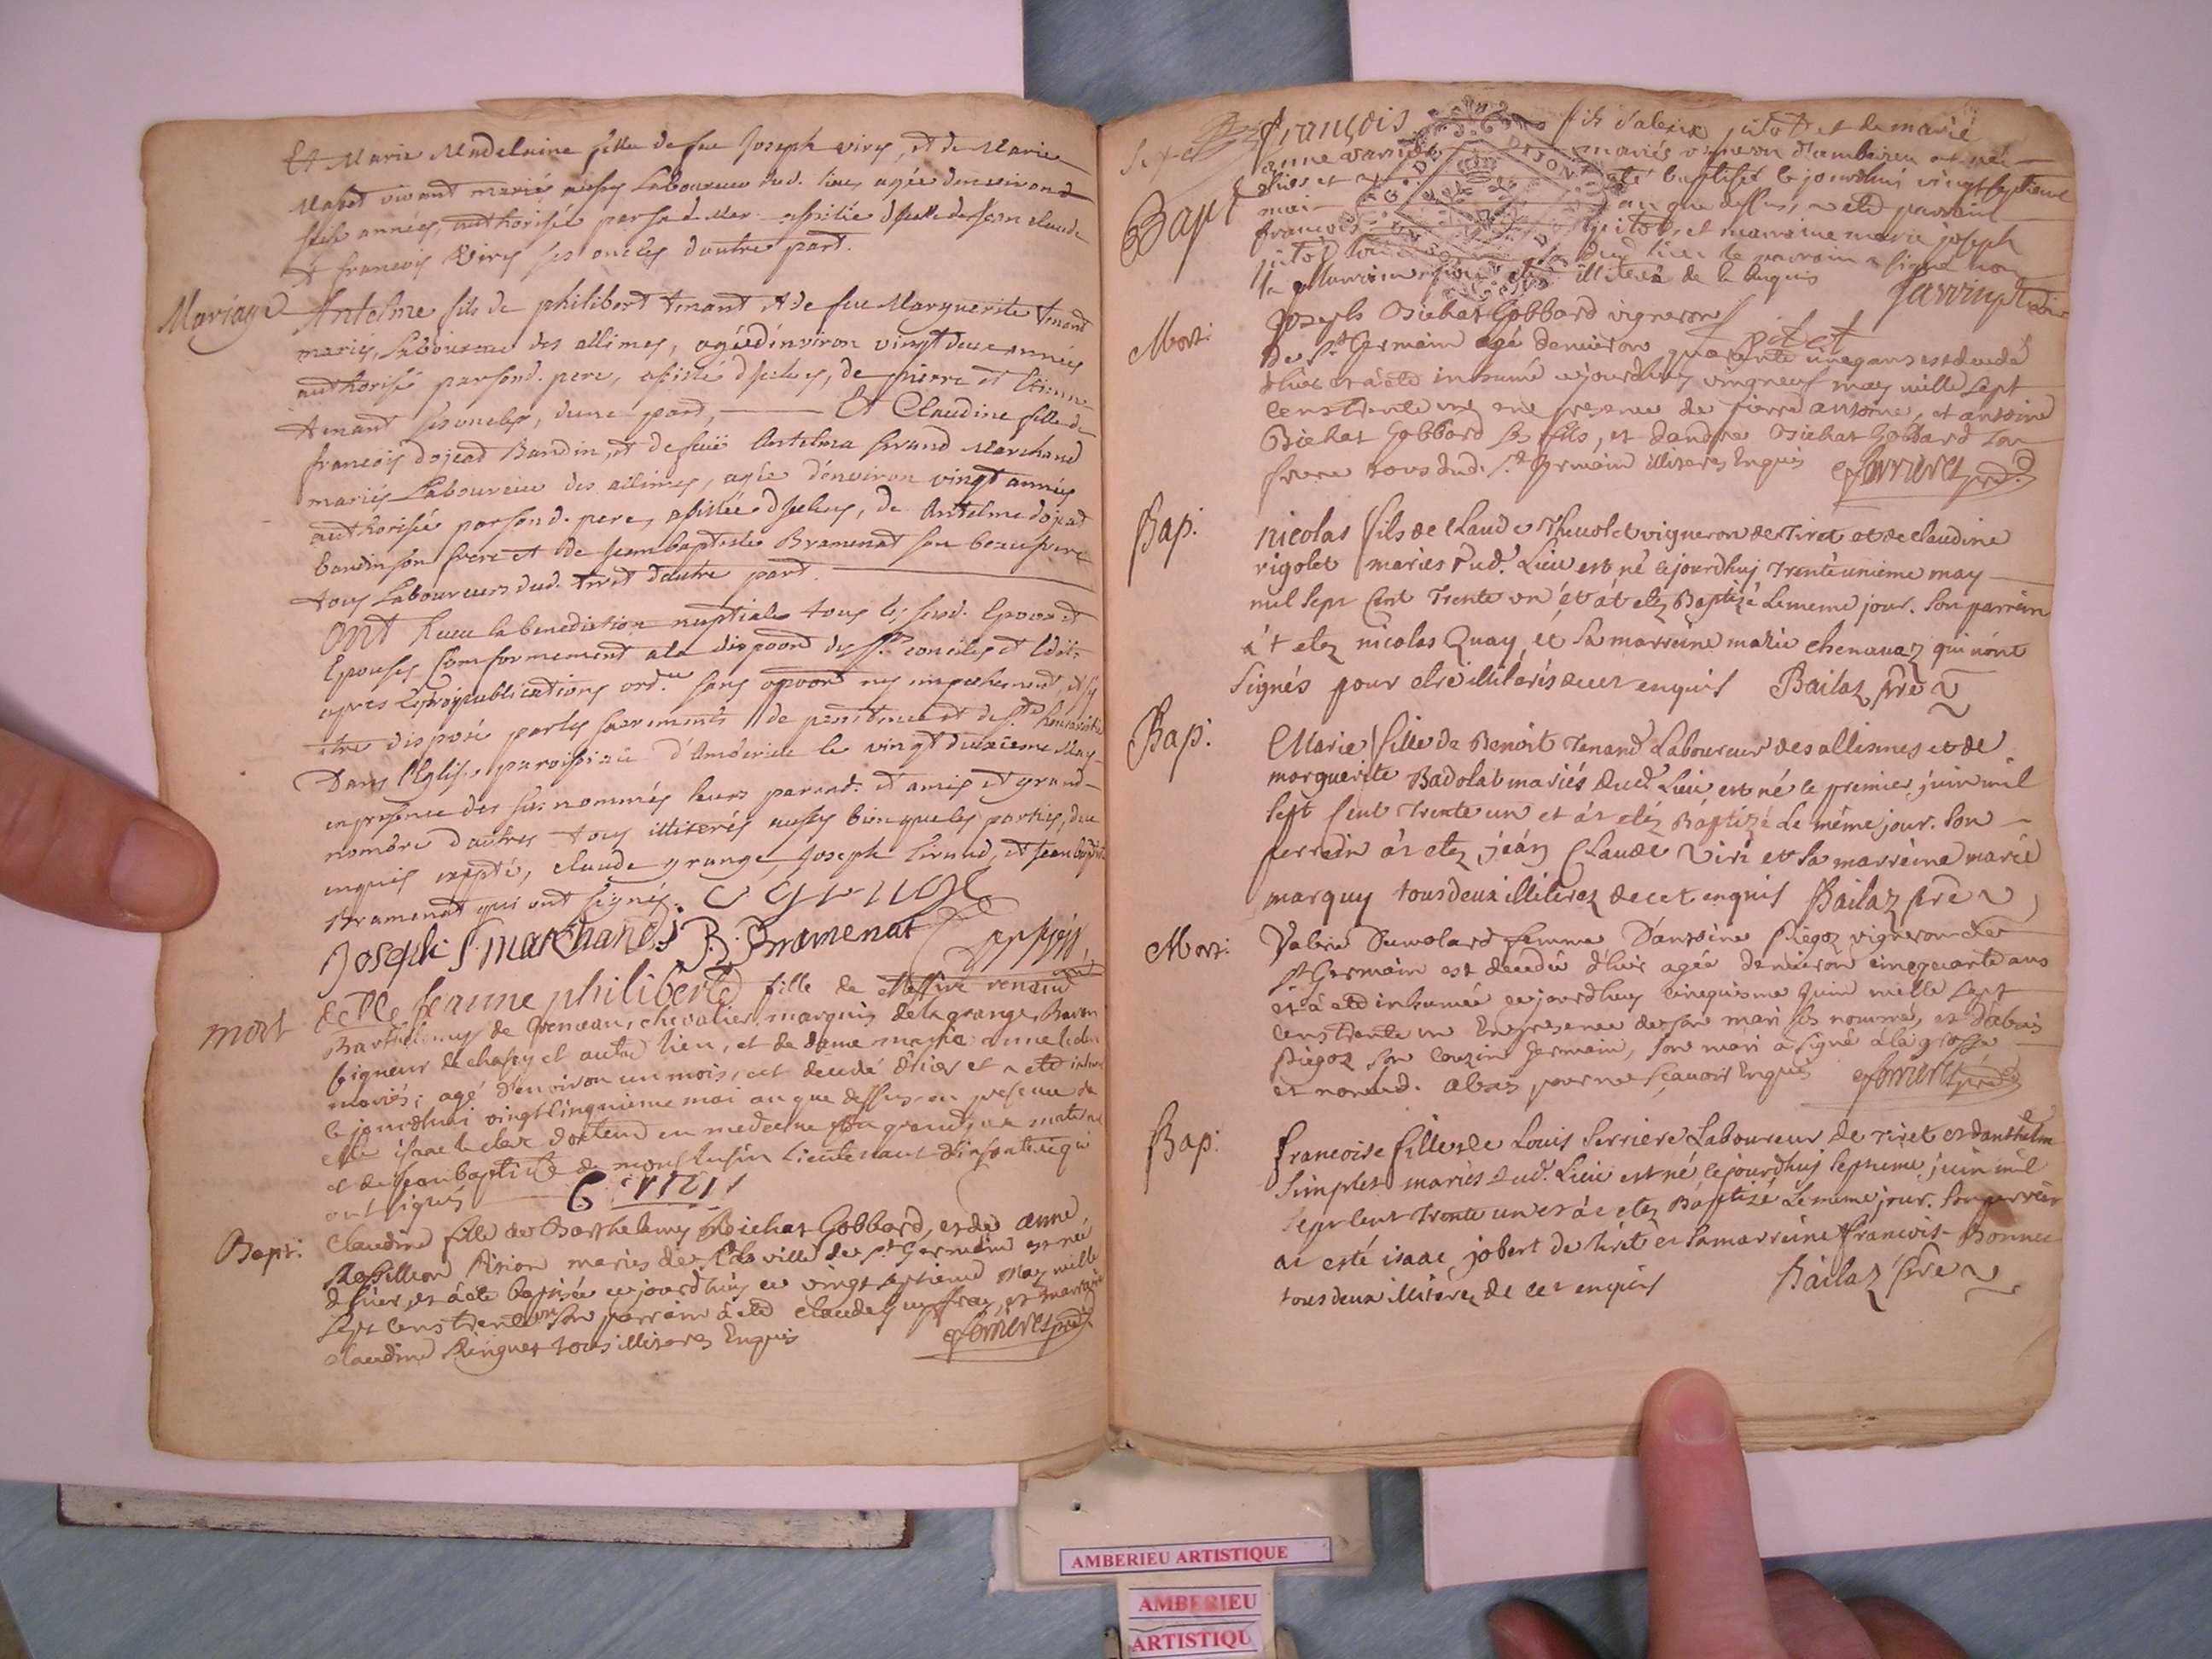 Et Marie Madelaine fille de feu Joseph viry, et de Marie
vivant mariés aussy Laboureur dud. lieu agée d'environ
années, authorisée par sad. Mere assistée de Jean claude
et francois Viry ses oncles d'autre part.
Mariage
Antelme fils de philibert tenant et de feu Marguerite tenand
mariés, Laboureur des allimes, agé d'environ vingt deux années
authorisé par sond. pere, assisté d'iceluy, de pierre et Etienne
tenant ses oncles, d'une part, Et Claudine fille de
francois dojead Baudin, et de feüe Antelma Marchand
mariés Laboureur des allimes, agée d'environ vingt années
authorisée par sond. pere, assistée d'iceluy, de Antelme dojead
baudin son frere et de Jean baptiste Bramenat son beaufrere
tous Laboureurs dud. d'autre part.
Ont Receu la benediction nuptiale tous les susd. Epoux et
Epouses Conformement a la dispoon des Sts conciles et Edits
apres publications ord. sans opoon ny empechement,
etre disposé par les sacrements de penitence et de Ste
Dans l'Eglise paroissiale d'Amberieu le vingt deuxieme May
en presence des sus nommés leurs parents et amis et grand
nombre d'autres tous illiterés aussy bien que les parties, de ce
enquis excepté, claude grange, Joseph et Jean baptiste
Bramenat qui ont signés. C grange
Joseph S. marchand J. B. Bramenat
mort
delle Jeanne philiberte fille de Messire
Barthelemy de chevalier, marquis de la grange, Baron
seigneur de chasey et autre lieu, et de dame marie anne
mariés; agé d'environ un mois, est decedé d'hier et a eté
le jourdhui vingt cinquieme mai an que dessus en presence de
isaac le clerc docteur en medecine grand pere maternel
et de Jean baptiste de lieutenant d'infanterie qui
ont signés
Bapt:
Claudine fille de Barthelemy Bichat Gobbard, et de anne
mariés de la ville de St Germain est née
d'hier, et a eté baptisée cejourdhuy ce vingt septieme May mille
sept cens trente un son parrain a eté claude et marraine
claudine Ringuet tous illiteres Enquis
Bapt
françois fils d'alexis pitot et de marie
anne mariés vigneron d'amberieu est né
hier et a eté baptisé le jourdhui vingt septieme
mai an que dessus, a eté parrain
francois pitot, et marraine marie joseph
pitot dud. lieu le parrain a signé non
la Marraine pour etre illiteré de ce Enquis
pitot
Mort:
Joseph Bichat Gobbard vigneron
de St Germain agé d'environ quarante cinq ans est decedé
d'hier et a eté inhumé cejourdhuy vingneuf may mille sept
cens trente un en presence de pierre antoine, et antoine
Bichat Gobbard ses fils, et d'andrea Bichat Gobbard son
frere tous dud. St Germain illiteres Enquis
Bap:
nicolas fils de Claude Thevolet vigneron de Tiret et de claudine
rigolet mariés dud. Lieu est né cejourdhuj Trente unieme may
mil sept Cent Trente un et at etez Baptizé Le meme jour. son parrain
at etez nicolas Quay, et sa marreine marie chenavaz qui n'ont
signés pour etre illiterés de ce enquis Bailaz pre
Bap:
Marie fille de Benoit Tenand Laboureur des allimes et de
marguerite Badolat mariés dud. Lieu est né le premier juin mil
sept Cent Trente un et at etez Baptizé Le même jour. son
perrein at etez jean Claude Viri et sa marreine marie
marquy tous deux illiterez de cet enquis Bailaz pre
Mort:
Valerie Dumolard femme D'antoine Piegoz vigneron de
St Germain est decedée d'hier agée d'environ cinquante ans
et a eté inhumée cejourdhuy cinquieme Juin mille sept
cens trente un En presence de son mari sus nommé, et d'alexis
Piegoz son Cousin germain, son mari a signé à la grosse
et non led. alexis pour ne sçavoir Enquis
Bap:
francoise fille de Louis ferriere Laboureur de tiret et danthelme
simplet mariés dud. Lieu est né cejourdhuj septieme juin mil
sept cent trente un et at etez Baptizé Le meme jour. son perrein
at esté isaac jobert de tiret et sa marreine francoise Bonnet
tous deux illiterez de cet enquis Bailaz pre
AMBERIEU ARTISTIQUE
AMBERIEU
ARTISTIQU